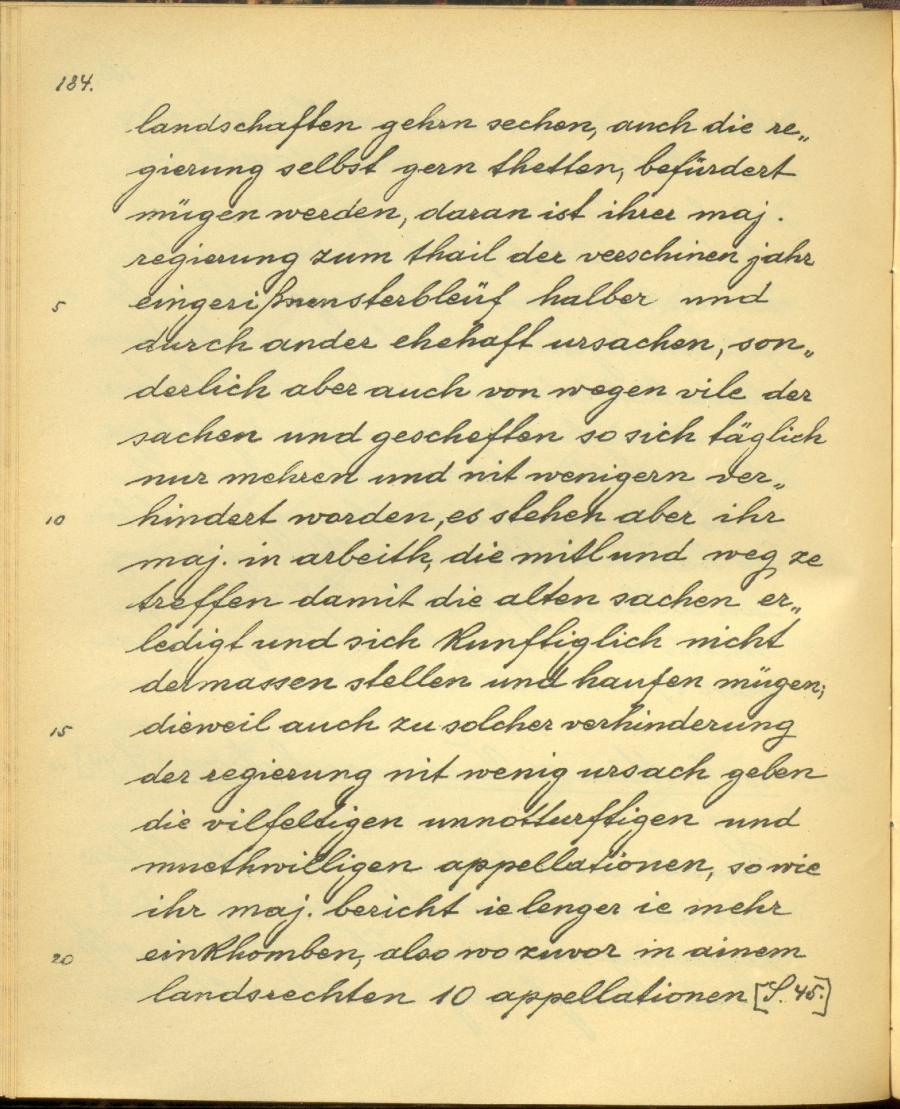 184.
landschaften gehrn sechen, auch die re„
gierung selbst gern thetten, befürdert
mügen werden, daran ist ihrer maj.
regierung zum thail der verschinen jahr
5 eingerißnen sterbleüf halber und
durch ander ehehaft ursachen, son„
derlich aber auch von wegen vile der
sachen und gescheften so sich täglich
nur mehren und nit wenigern ver„
10 hindert worden, es stehen aber ihr
maj. in arbeith, die mitl und weg ze
treffen damit die alten sachen er„
ledigt und sich kunftiglich nicht
dermassen stellen und haufen mügen;
15 dieweil auch zu solcher verhinderung
der regierung nit wenig ursach geben
die vilfeltigen unnotturftigen und
muethwilligen appellationen, so wie
ihr maj. bericht ie lenger ie mehr
20 einkhomben, also wo zuvor in ainem
landsrechten 10 appellationen [S. 45.]